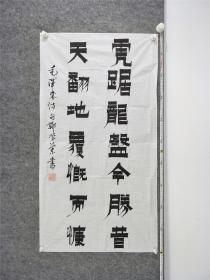 虎踞龍盤今勝昔
天翻地覆慨而慷
毛澤東詩